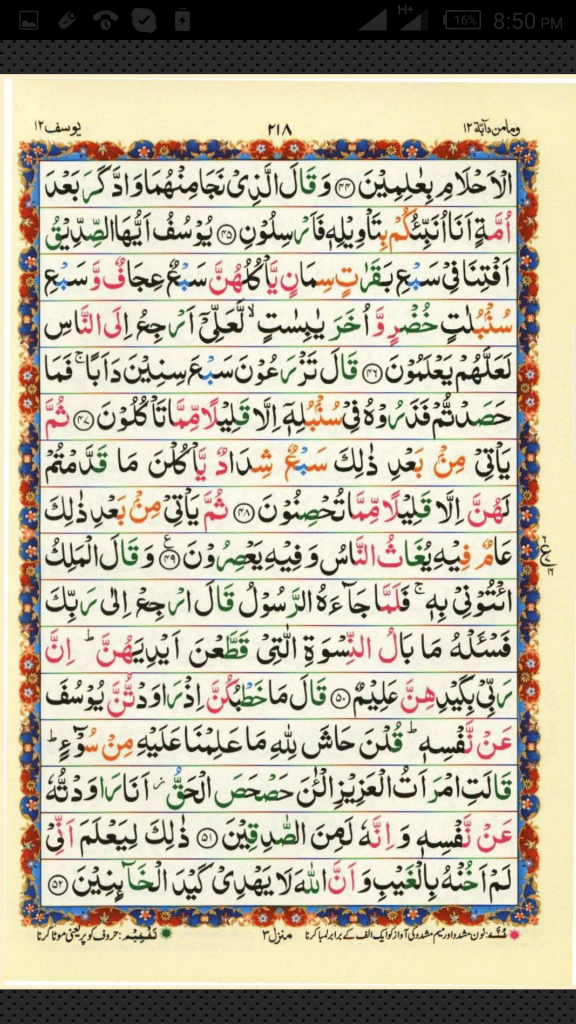 H+ 16% 8:50 PM
ومامن دآبة ١٢ ٢١٨ يوسف ١٢
الۡاَحۡلَامِ بِعٰلِمِيۡنَ ﴿۴۴﴾ وَقَالَ الَّذِىۡ نَجَا مِنۡهُمَا وَادَّكَرَ بَعۡدَ
اُمَّةٍ اَنَا اُنَبِّئُكُمۡ بِتَاۡوِيۡلِهٖ فَاَرۡسِلُوۡنِ ﴿۴۵﴾ يُوۡسُفُ اَيُّهَا الصِّدِّيۡقُ
اَفۡتِنَا فِىۡ سَبۡعِ بَقَرٰتٍ سِمَانٍ يَّاۡكُلُهُنَّ سَبۡعٌ عِجَافٌ وَّ سَبۡعِ
سُنۡۢبُلٰتٍ خُضۡرٍ وَّ اُخَرَ يٰبِسٰتٍ ۙ لَّعَلِّىۡۤ اَرۡجِعُ اِلَى النَّاسِ
لَعَلَّهُمۡ يَعۡلَمُوۡنَ ﴿۴۶﴾ قَالَ تَزۡرَعُوۡنَ سَبۡعَ سِنِيۡنَ دَاَبًا ۚ فَمَا
حَصَدْتُّمۡ فَذَرُوۡهُ فِىۡ سُنۡۢبُلِهٖۤ اِلَّا قَلِيۡلًا مِّمَّا تَاۡكُلُوۡنَ ﴿۴۷﴾ ثُمَّ
يَاۡتِىۡ مِنۡۢ بَعۡدِ ذٰلِكَ سَبۡعٌ شِدَادٌ يَّاۡكُلۡنَ مَا قَدَّمۡتُمۡ
لَهُنَّ اِلَّا قَلِيۡلًا مِّمَّا تُحۡصِنُوۡنَ ﴿۴۸﴾ ثُمَّ يَاۡتِىۡ مِنۡۢ بَعۡدِ ذٰلِكَ
عَامٌ فِيۡهِ يُغَاثُ النَّاسُ وَ فِيۡهِ يَعۡصِرُوۡنَ ﴿۴۹﴾ وَقَالَ الۡمَلِكُ
ائۡتُوۡنِىۡ بِهٖ ۚ فَلَمَّا جَآءَهُ الرَّسُوۡلُ قَالَ ارۡجِعۡ اِلٰى رَبِّكَ
فَسۡـَٔلۡهُ مَا بَالُ النِّسۡوَةِ الّٰتِىۡ قَطَّعۡنَ اَيۡدِيَهُنَّ ؕ اِنَّ
رَبِّىۡ بِكَيۡدِهِنَّ عَلِيۡمٌ ﴿۵۰﴾ قَالَ مَا خَطۡبُكُنَّ اِذۡ رَاوَدْتُّنَّ يُوۡسُفَ
عَنۡ نَّفۡسِهٖ ؕ قُلۡنَ حَاشَ لِلّٰهِ مَا عَلِمۡنَا عَلَيۡهِ مِنۡ سُوۡٓءٍ ؕ
قَالَتِ امۡرَاَتُ الۡعَزِيۡزِ الۡـٰٔنَ حَصۡحَصَ الۡحَقُّ ۫ اَنَا رَاوَدْتُّهٗ
عَنۡ نَّفۡسِهٖ وَاِنَّهٗ لَمِنَ الصّٰدِقِيۡنَ ﴿۵۱﴾ ذٰلِكَ لِيَعۡلَمَ اَنِّىۡ
لَمۡ اَخُنۡهُ بِالۡغَيۡبِ وَ اَنَّ اللّٰهَ لَا يَهۡدِىۡ كَيۡدَ الۡخَآئِنِيۡنَ ﴿۵۲﴾
غنّه: نون مشدد اور میم مشدد کی آواز کو ایک الف کے برابر لمبا کرنا منزل ٣ تفخيم: حروف کو پُر یعنی موٹا کرنا